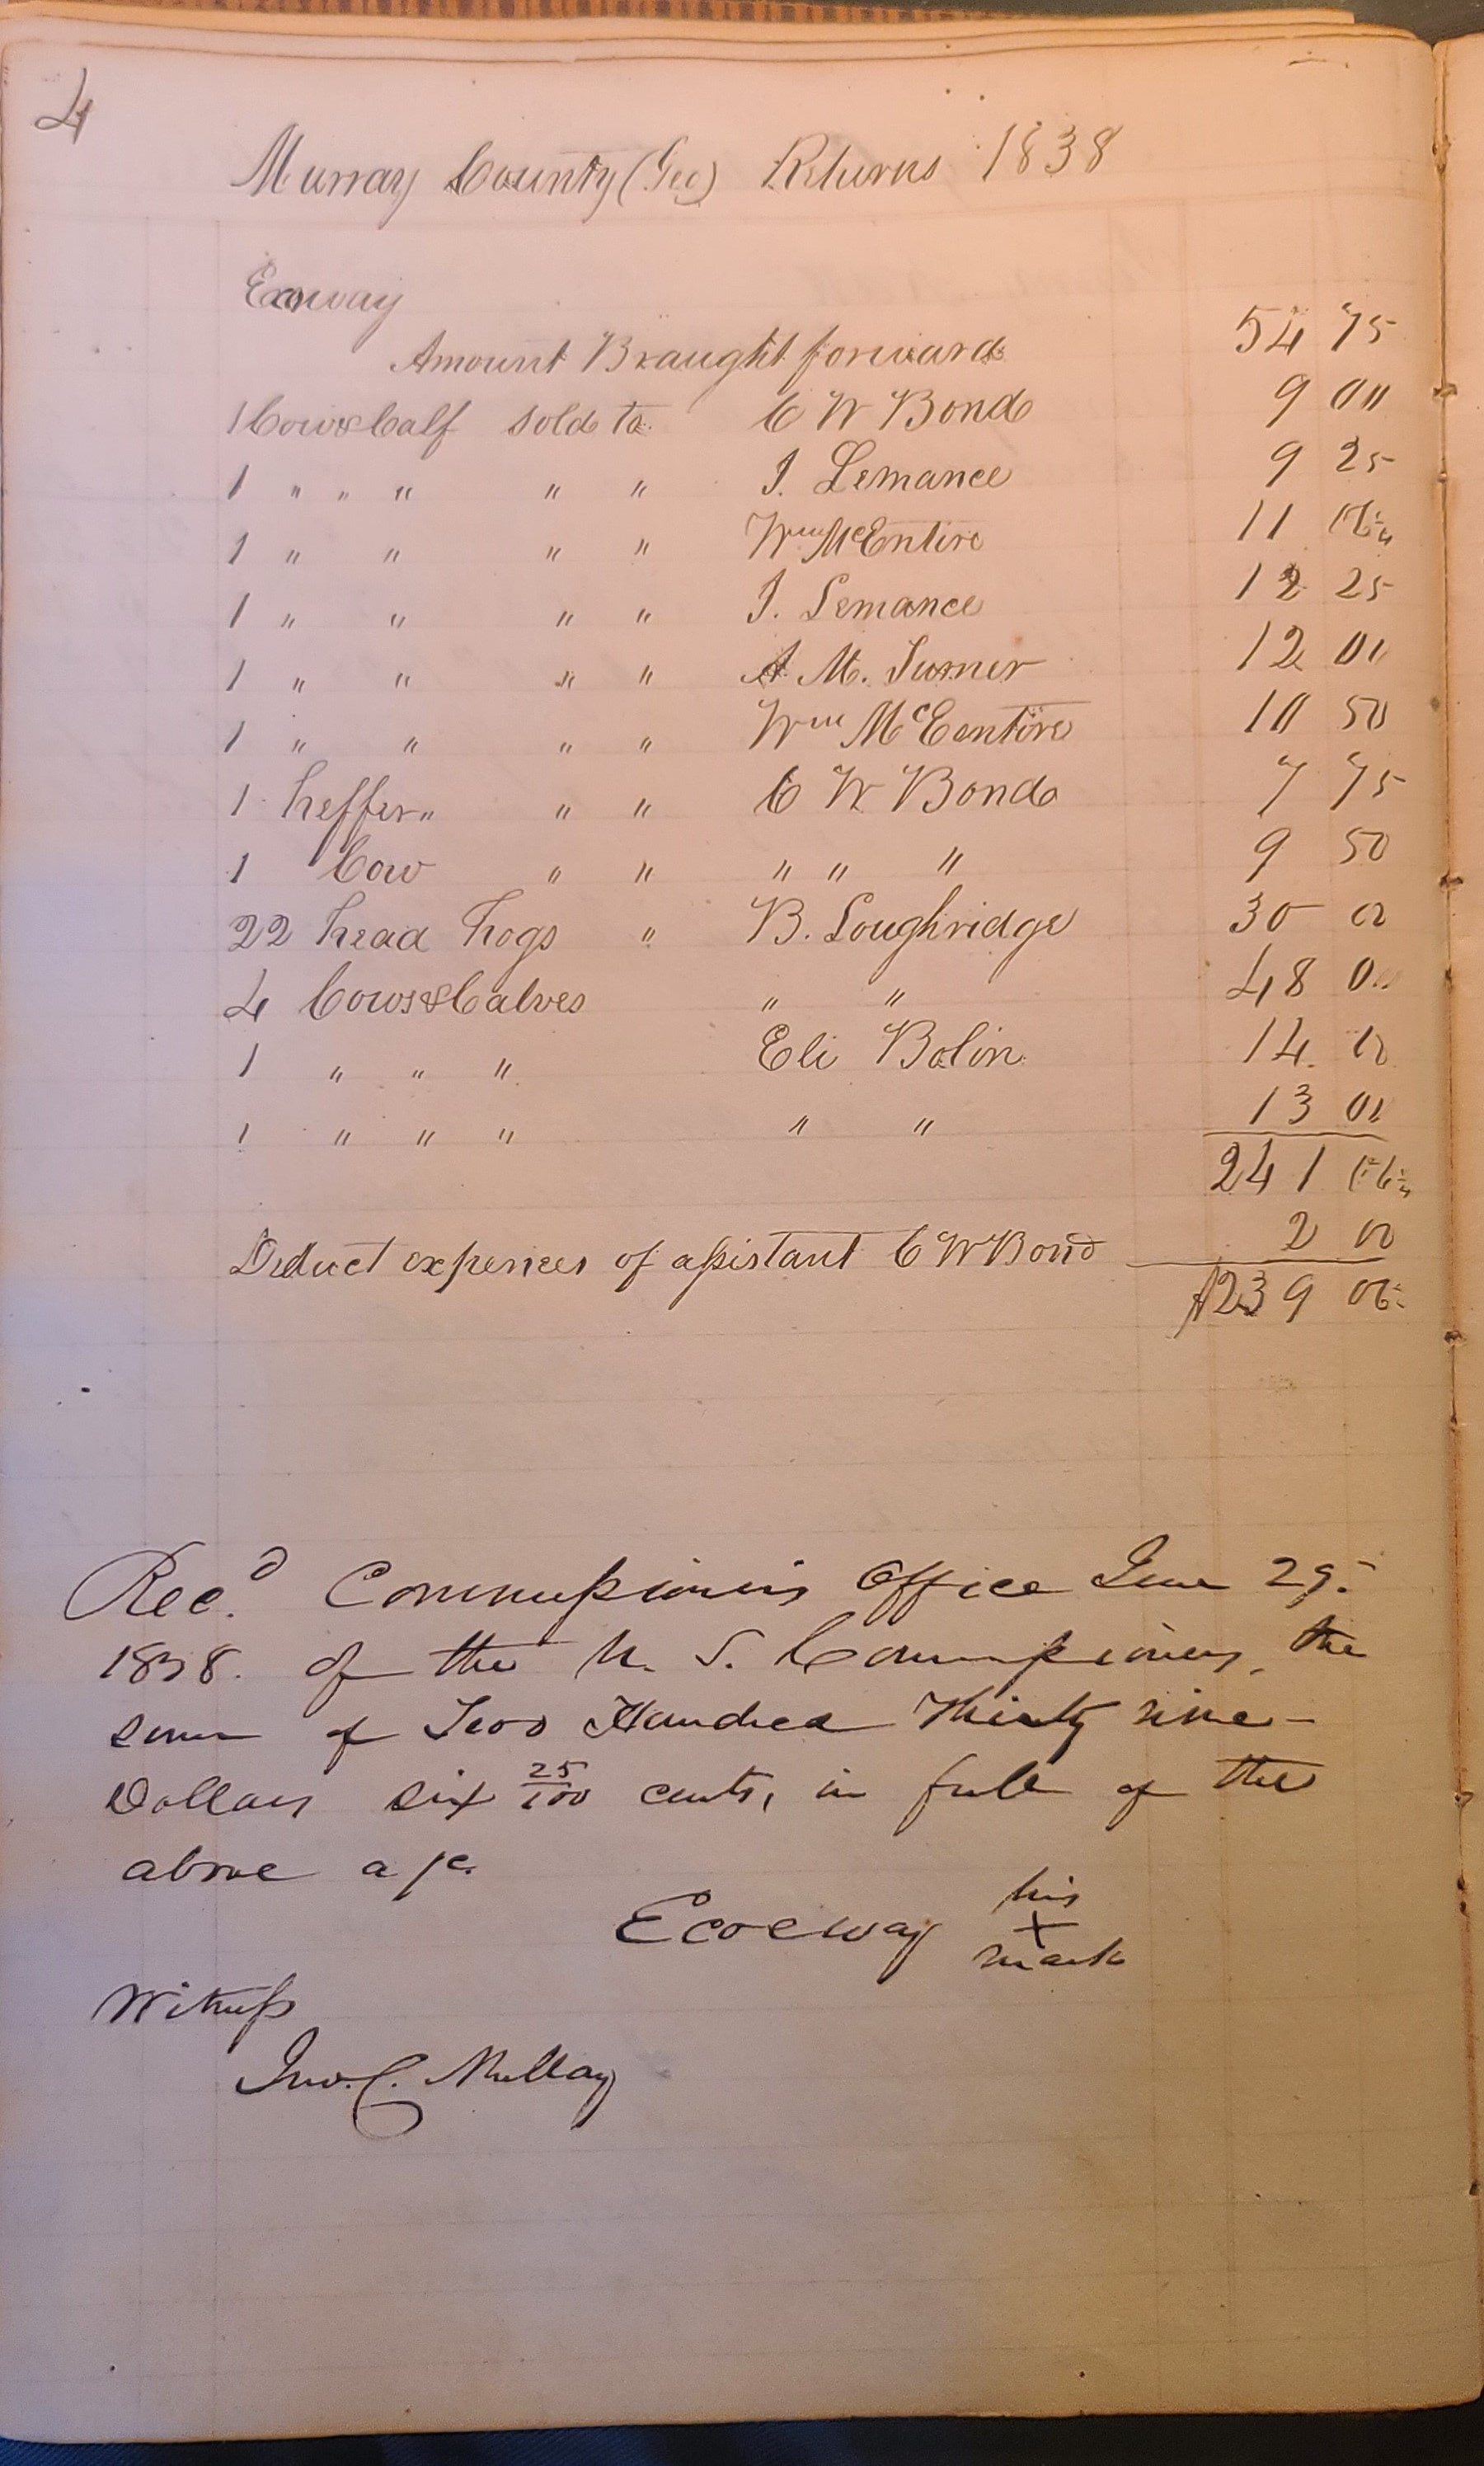 4
Murray County (Geo) Returns 1838
Exoway
Amount Braught forward 54 75
1 Cow & Calf sold to C W Bond 9 00
1 " " " " " J. Lemance 9 25
1 " " " " Wm McEntire 11 06¼
1 " " " " J. Lemance 12 25
1 " " " " A M. Turner 12 00
1 " " " " Wm McEentire 10 50
1 heffer " " " C W Bond 7 75
1 Cow " " " " " 9 50
22 head hogs " B. Loughridge 30 00
4 Cows & Calves " " 48 00
1 " " " Eli Bolin 14 00
1 " " " " " 13 00
241 06¼
Deduct expences of assistant C W Bond 2 00
$239 06¼
Recd. Commissioners Office June 29.
1838. of the U. S. Commissioners, the
sum of Two Hundred Thirty nine
Dollars six 25/100 cents, in full of the
above a/c.
his
Ecoeway X
mark
Witness
Jno. C. Mullay